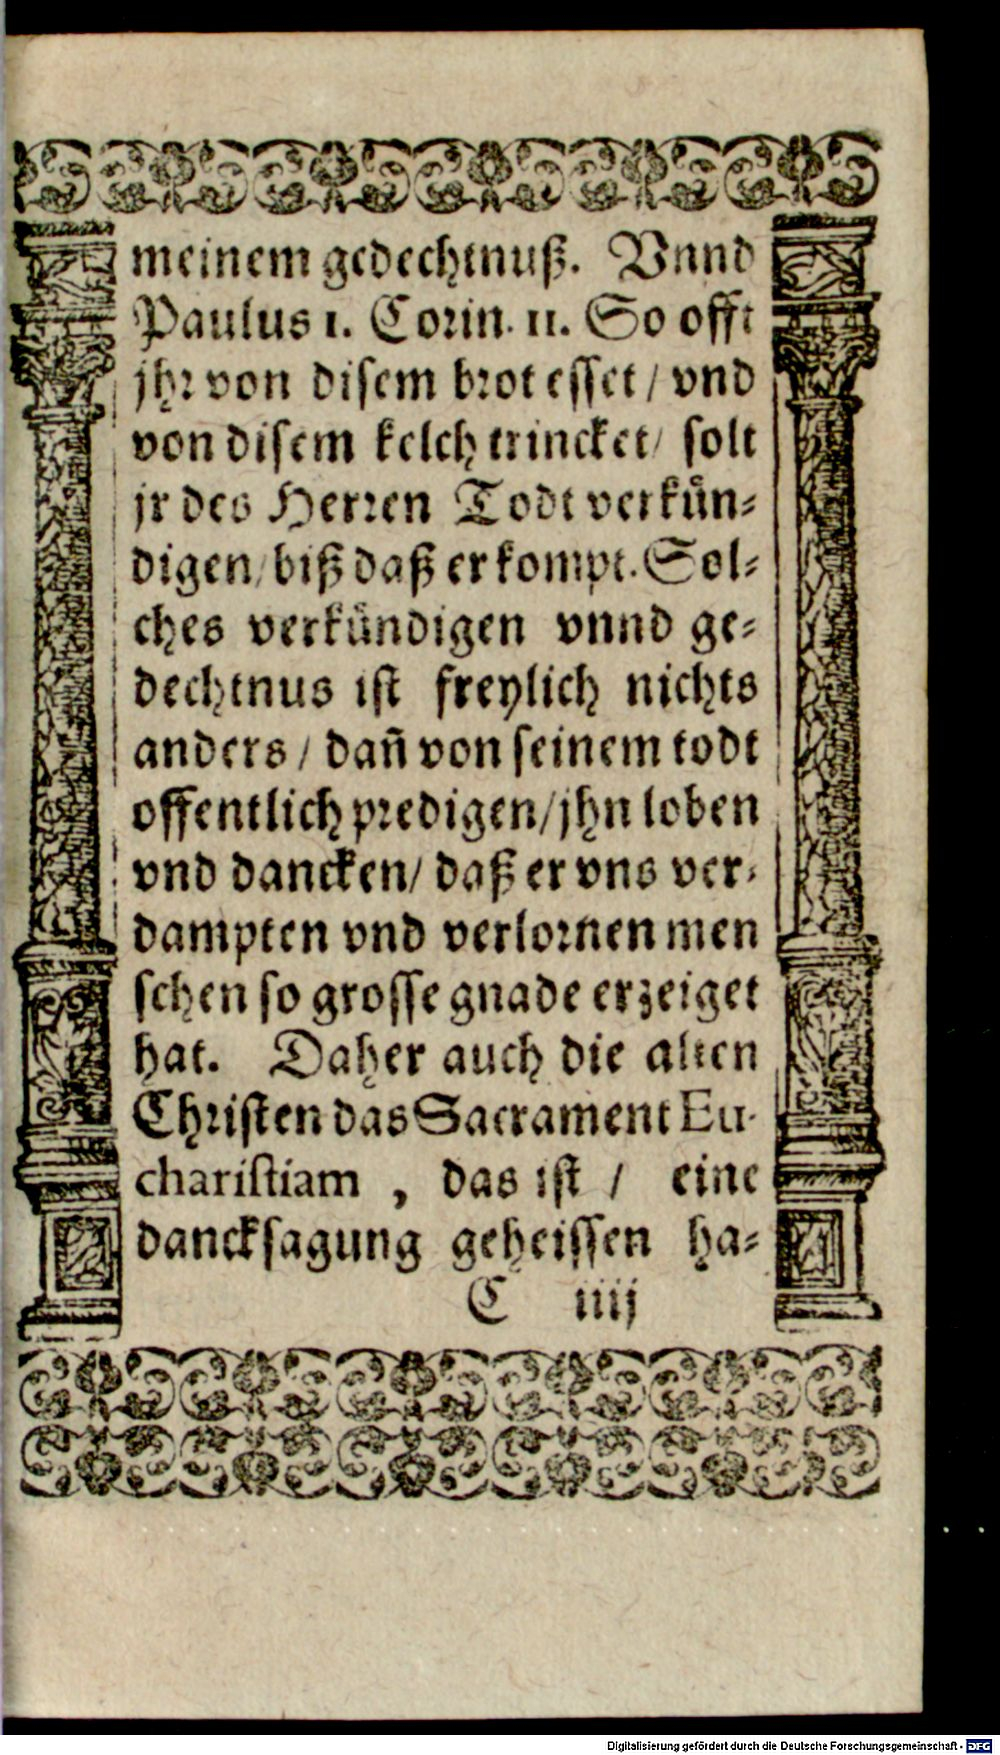 meinem gedechtnuß. Vnnd
Paulus 1. Corin. 11. So offt
jhr von disem brot esset / vnd
von disem kelch trincket / solt
jr des Herren Todt verkün⸗
digen / biß daß er kompt. Sol⸗
ches verkündigen vnnd ge⸗
dechtnus ist freylich nichts
anders / dañ von seinem todt
offentlich predigen / jhn loben
vnd dancken / daß er vns ver⸗
dampten vnd verlornen men
schen so grosse gnade erzeiget
hat. Daher auch die alten
Christen das Sacrament Eu-
charistiam , das ist / eine
dancksagung geheissen ha⸗
C iiij
Digitalisierung gefördert durch die Deutsche Forschungsgemeinschaft - DFG